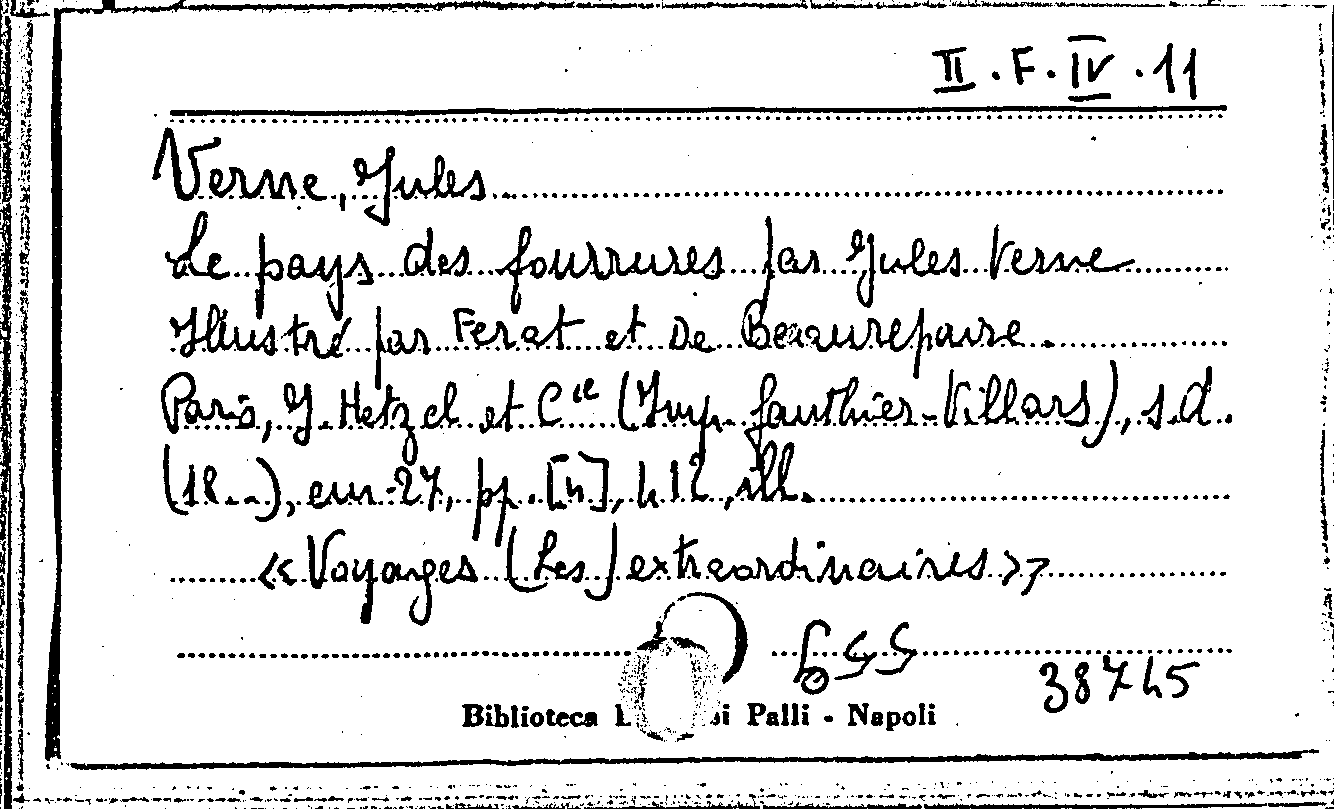 II.F.IV.11
Verne, Jules
Le pays des fourrures par Jules Verne
Illustré par Ferat et De Beaurepaire.
Paris, J. Hetzel et Cie (Imp. Gauthier-Villars), s.d.
(18..), cm. 27, pp. [4], 412, ill.
«Voyages (Les) extraordinaires»
38745
Biblioteca Palli - Napoli